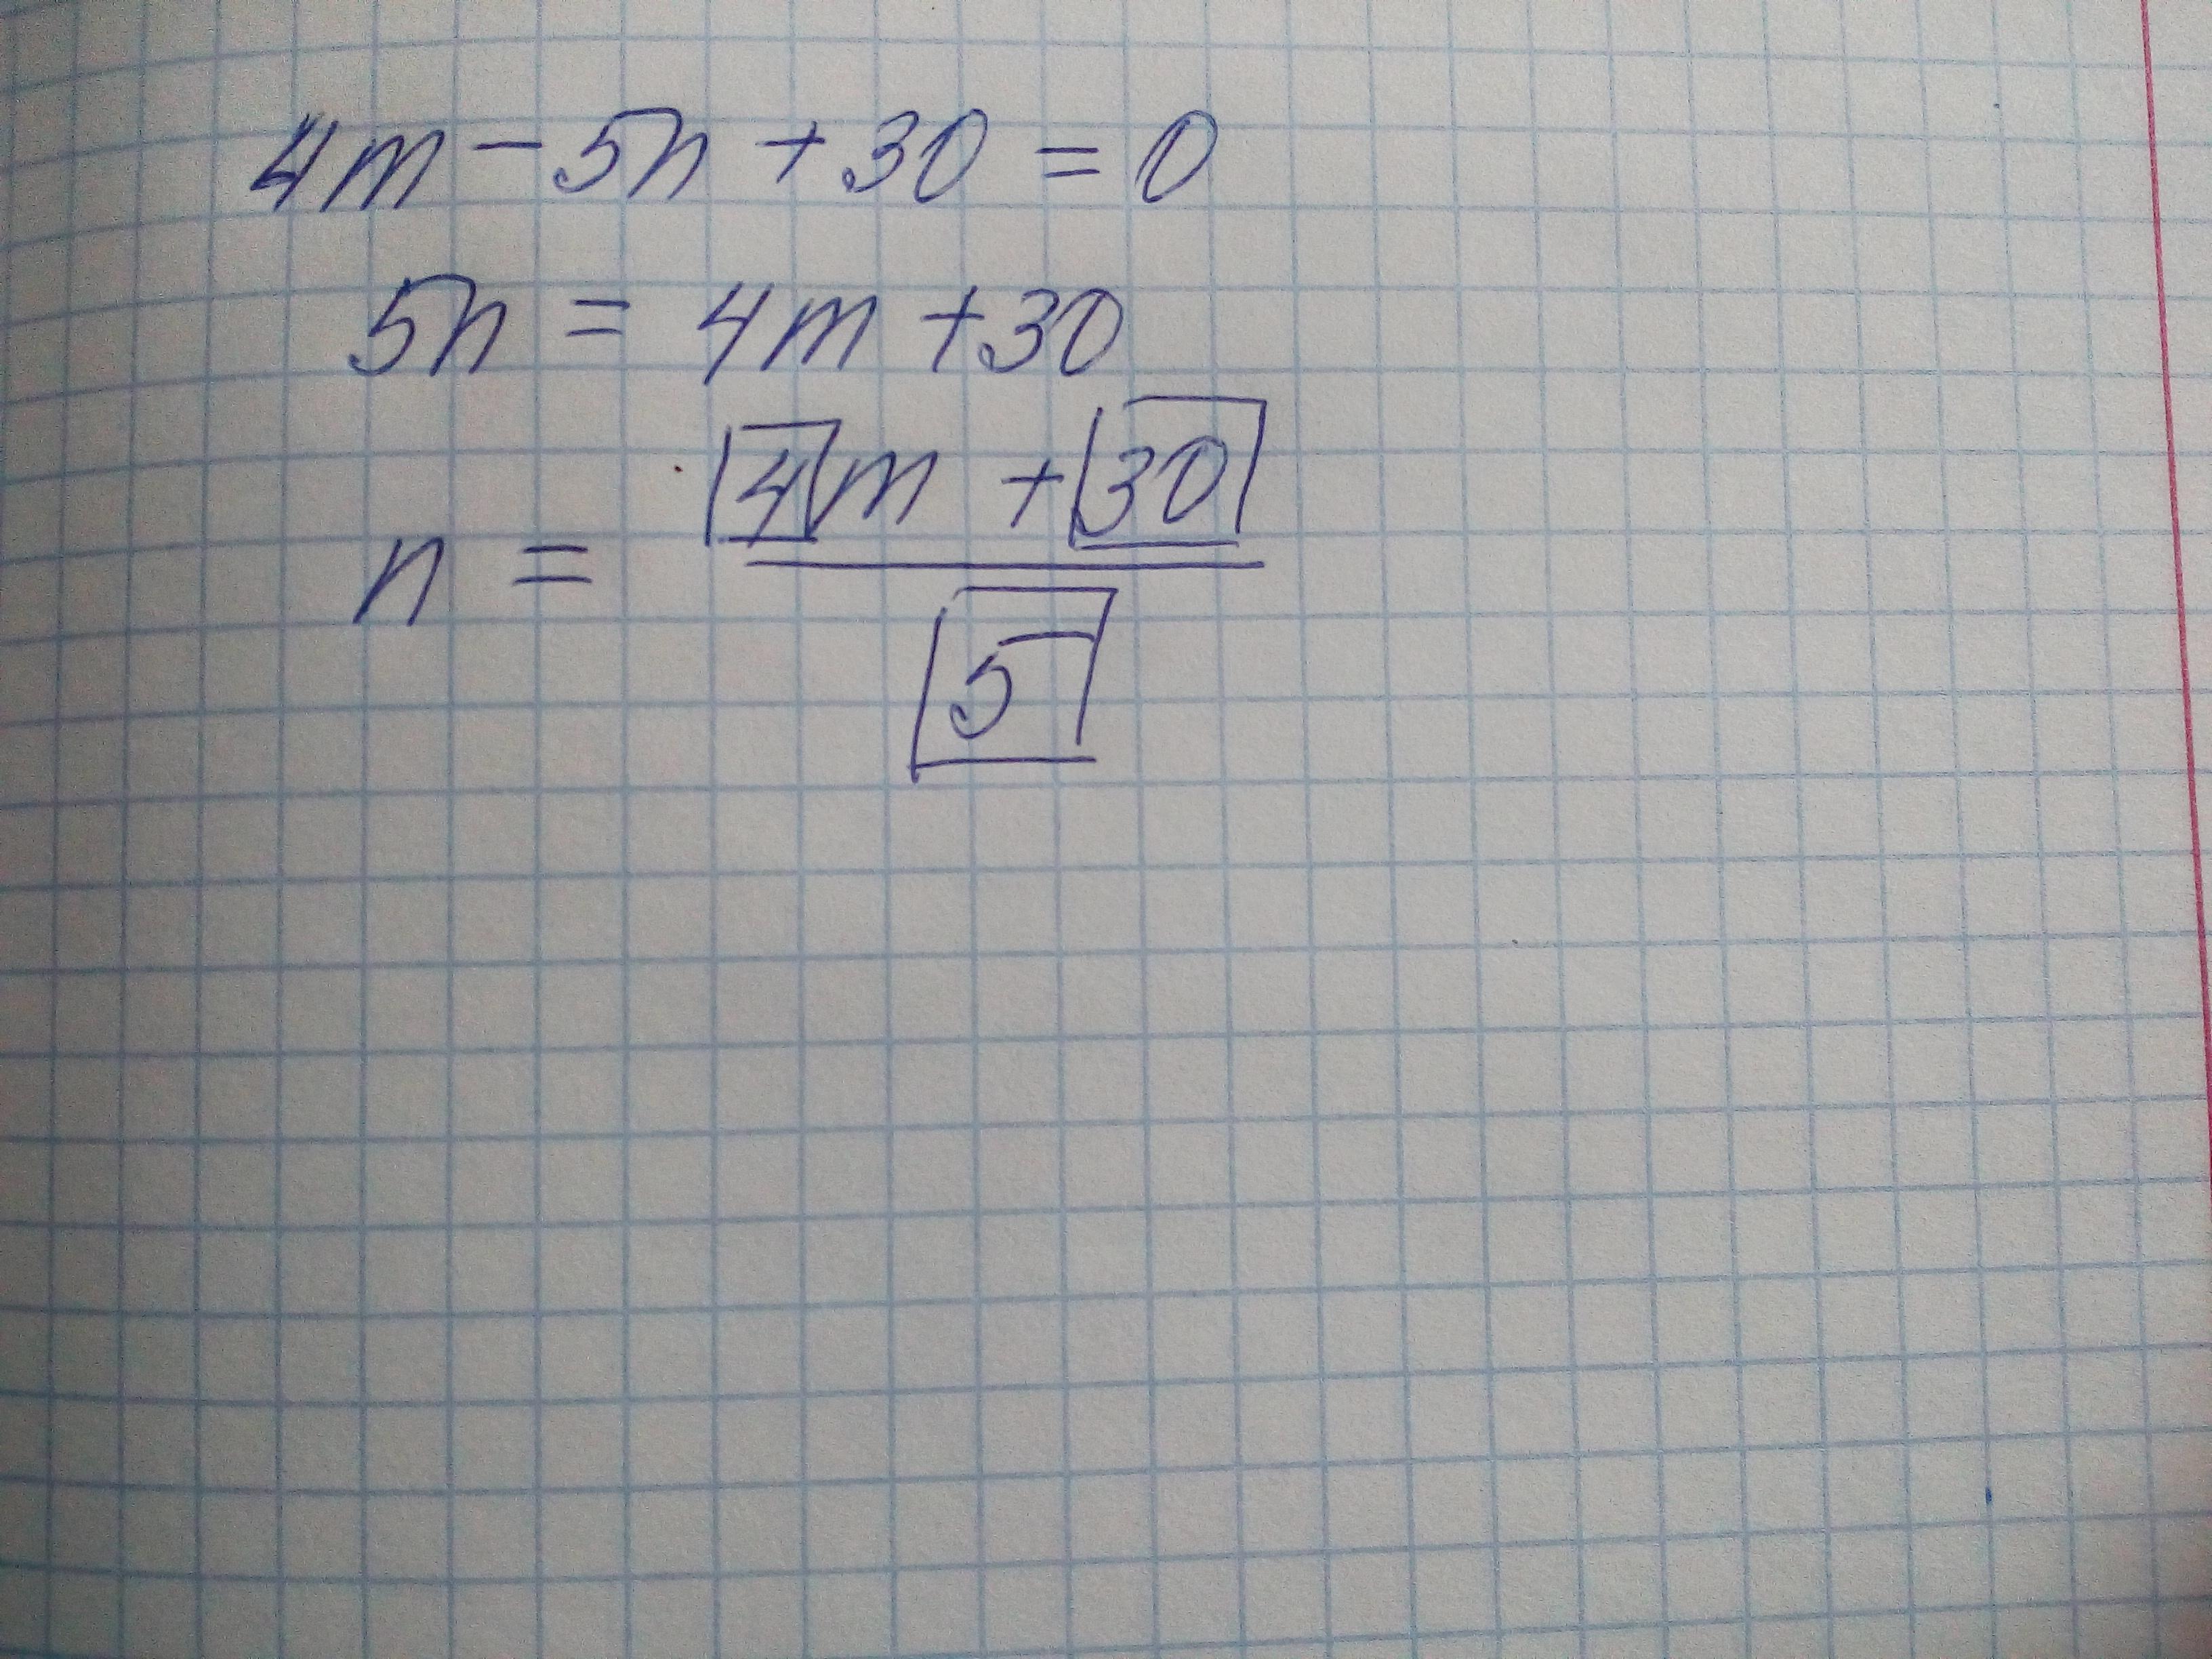 4m - 5n + 30 = 0
5n = 4m + 30
n = \frac{4m + 30}{5}